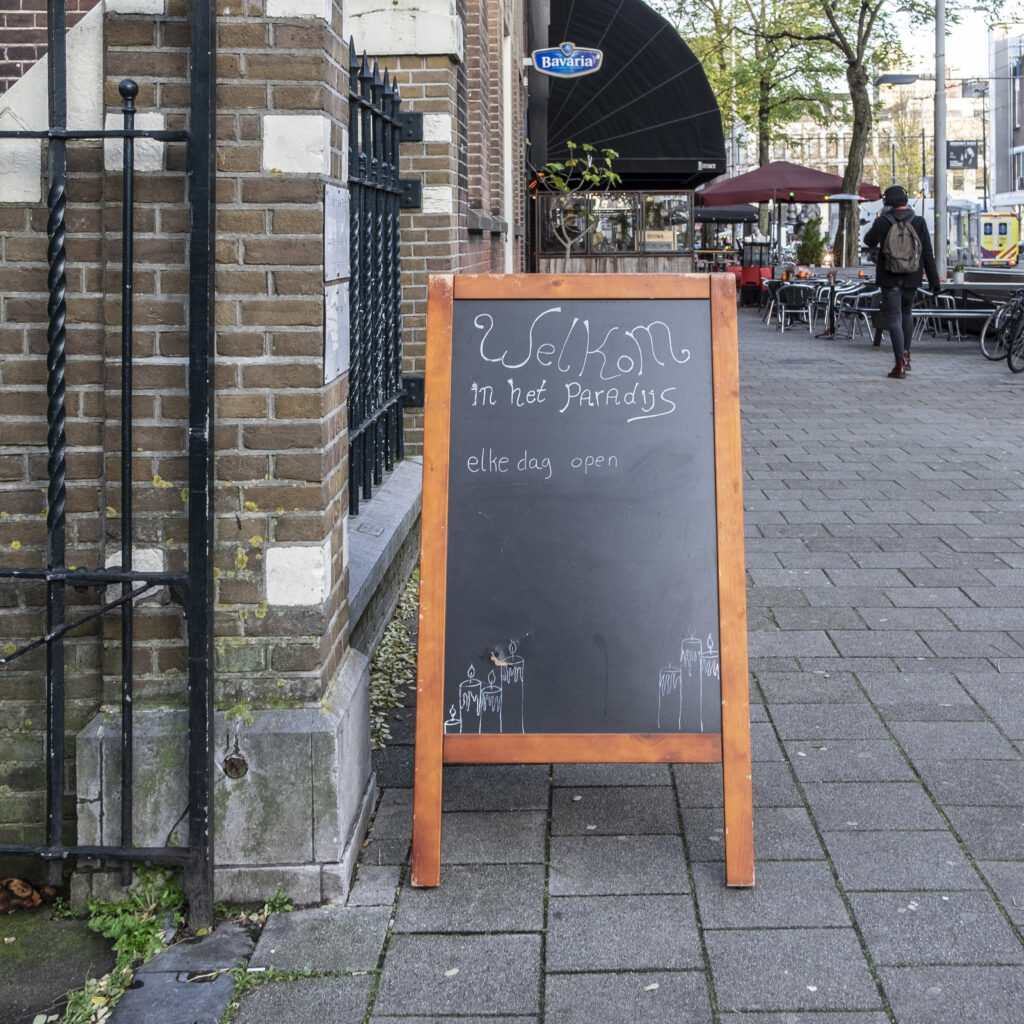 Bavaria
Welkom
in het Paradijs
elke dag open